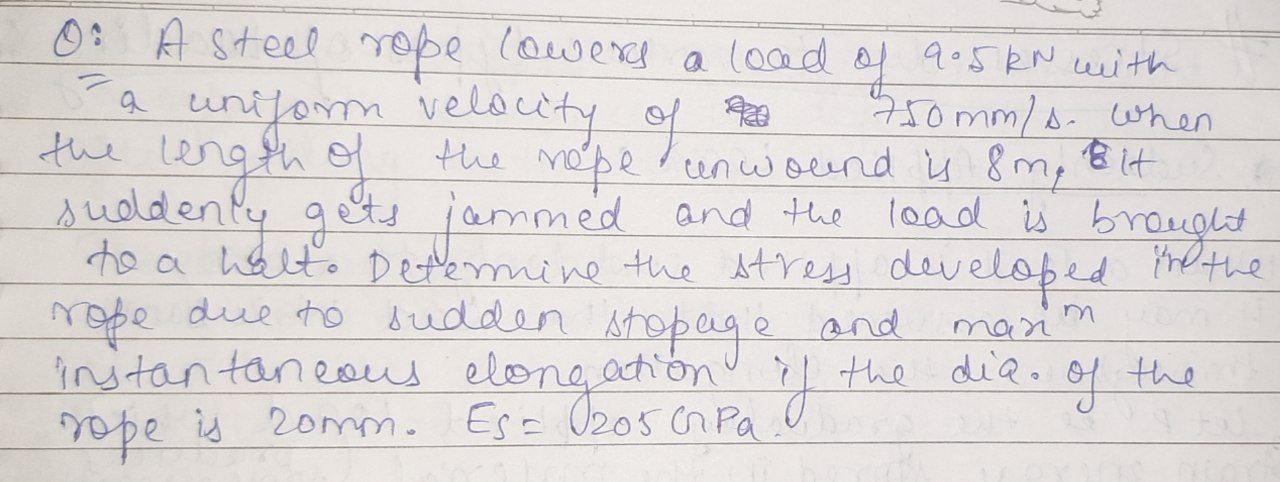 Q: A steel rope lowers a load of 9.5 kN with
a uniform velocity of 750 mm/s. When
the length of the rope unwound is 8m, it
suddenly gets jammed and the load is brought
to a halt. Determine the stress developed in the
rope due to sudden stopage and maxm
instantaneous elongation if the dia. of the
rope is 20mm. Es = 205 GPa.